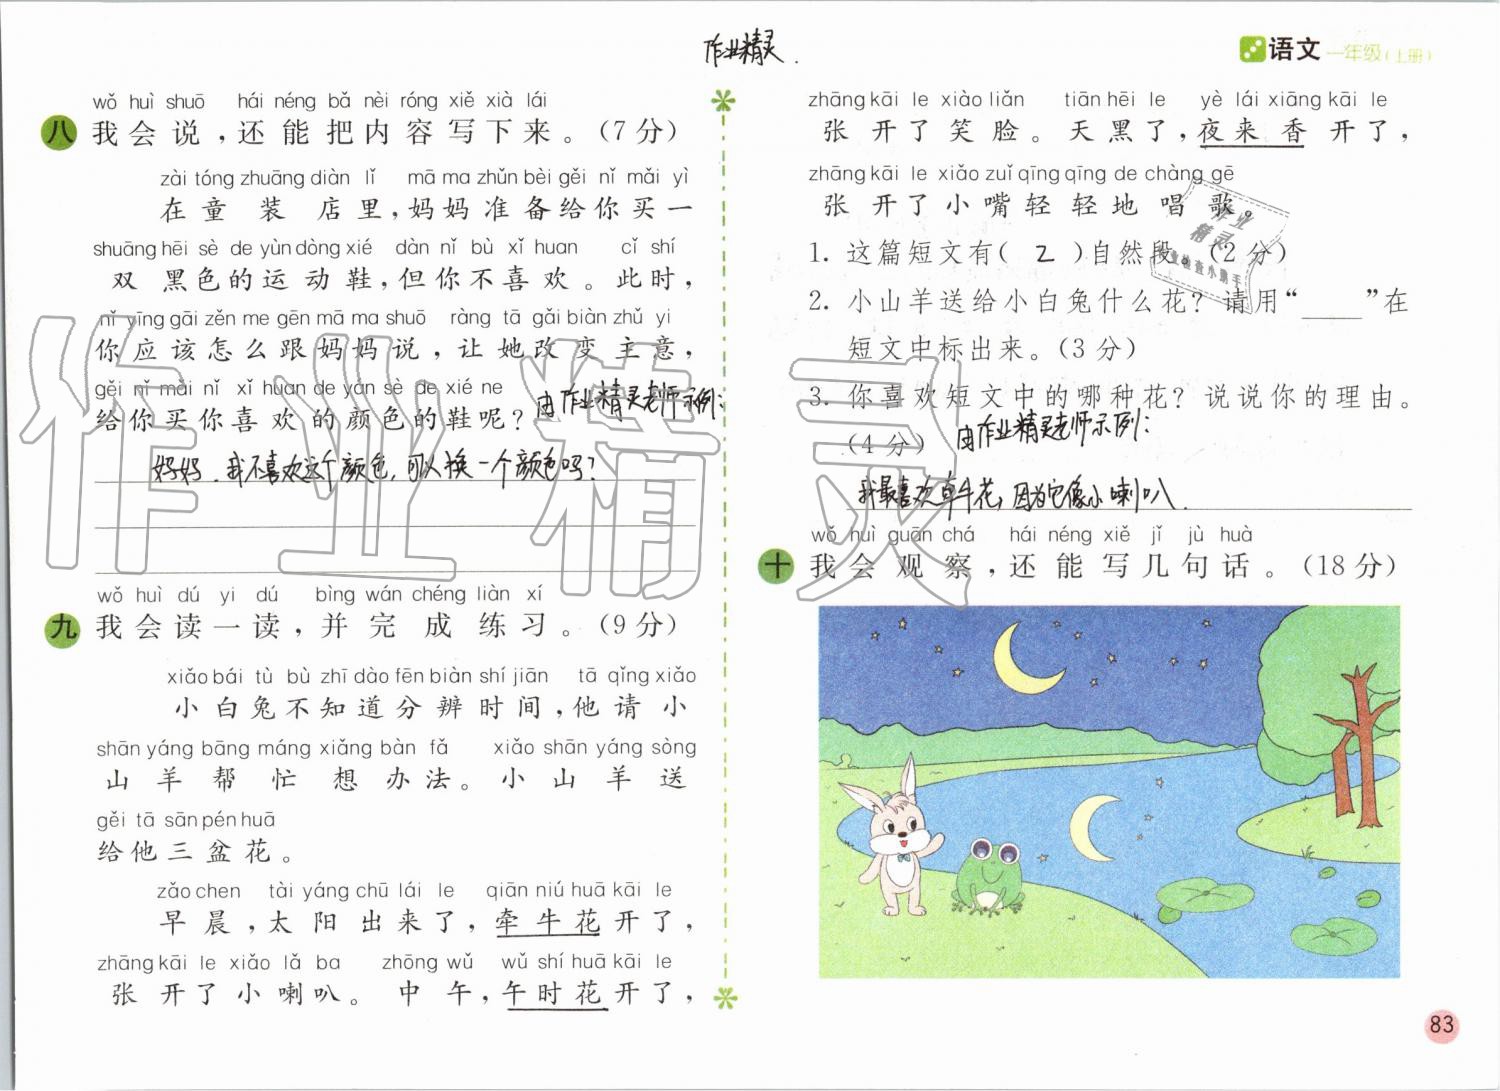 作业精灵.
语文 一年级(上册)
wǒ huì shuō hái néng bǎ nèi róng xiě xià lái
八 我会说,还能把内容写下来。(7分)
zài tóng zhuāng diàn lǐ mā ma zhǔn bèi gěi nǐ mǎi yì
在童装店里,妈妈准备给你买一
shuāng hēi sè de yùn dòng xié dàn nǐ bù xǐ huan cǐ shí
双黑色的运动鞋,但你不喜欢。此时,
nǐ yīng gāi zěn me gēn mā ma shuō ràng tā gǎi biàn zhǔ yi
你应该怎么跟妈妈说,让她改变主意,
gěi nǐ mǎi nǐ xǐ huan de yán sè de xié ne
给你买你喜欢的颜色的鞋呢? 由作业精灵老师示例:
妈妈,我不喜欢这个颜色,可以换一个颜色吗?
wǒ huì dú yi dú bìng wán chéng liàn xí
九 我会读一读,并完成练习。(9分)
xiǎo bái tù bù zhī dào fēn biàn shí jiān tā qǐng xiǎo
小白兔不知道分辨时间,他请小
shān yáng bāng máng xiǎng bàn fǎ xiǎo shān yáng sòng
山羊帮忙想办法。小山羊送
gěi tā sān pén huā
给他三盆花。
zǎo chen tài yáng chū lái le qiān niú huā kāi le
早晨,太阳出来了,牵牛花开了,
zhāng kāi le xiǎo lǎ ba zhōng wǔ wǔ shí huā kāi le
张开了小喇叭。中午,午时花开了,
zhāng kāi le xiào liǎn tiān hēi le yè lái xiāng kāi le
张开了笑脸。天黑了,夜来香开了,
zhāng kāi le xiǎo zuǐ qīng qīng de chàng gē
张开了小嘴轻轻地唱歌。
1. 这篇短文有( 2 )自然段。(2分)
2. 小山羊送给小白兔什么花?请用“____”在
短文中标出来。(3分)
3. 你喜欢短文中的哪种花?说说你的理由。
(4分) 由作业精灵老师示例:
我最喜欢牵牛花,因为它像小喇叭.
wǒ huì guān chá hái néng xiě jǐ jù huà
十 我会观察,还能写几句话。(18分)
作业
精灵
作业检查小助手
作业精灵
83